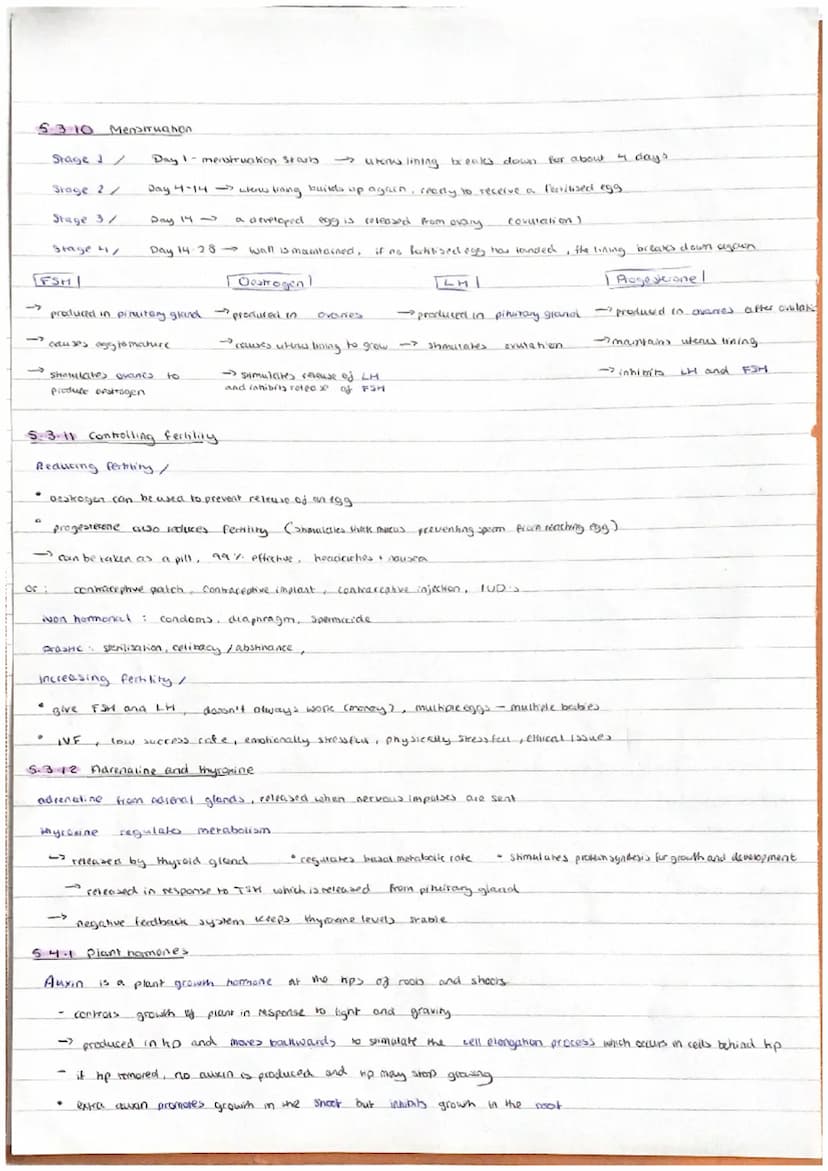 5.3.10 Menstruation
Stage 1 / Day 1 - menstruation starts → uterus lining breaks down for about 4 days
Stage 2 / Day 4-14 → uterus lining builds up again, ready to receive a fertilised egg
Stage 3 / Day 14 → a developed egg is released from ovary (ovulation)
Stage 4 / Day 14-28 → wall is maintained, if no fertilised egg has landed, the lining breaks down again
FSH Oestrogen LH Progesterone
→ produced in pituitary gland → produced in ovaries → produced in pituitary gland → produced in ovaries after ovulatio
→ causes egg to mature → causes uterus lining to grow → stimulates ovulation → maintains uterus lining
→ stimulates ovaries to → stimulates release of LH → inhibits LH and FSH
produce oestrogen and inhibits release of FSH
5.3.11 Controlling fertility
Reducing fertility /
• oestrogen can be used to prevent release of an egg
• progesterone also reduces fertility (stimulates thick mucus preventing sperm from reaching egg)
→ can be taken as a pill, 99% effective, headaches + nausea
or: contraceptive patch, contraceptive implant, contraceptive injection, IUD's
Non hormonal : condoms, diaphragm, spermicide
Drastic : sterilisation, celibacy / abstinance,
Increasing fertility /
• give FSH and LH, doesn't always work (money), multiple eggs - multiple babies
• IVF, low success rate, emotionally stressful, physically stressful, ethical issues
5.3.12 Adrenaline and thyroxine
adrenaline from adrenal glands, released when nervous impulses are sent
thyroxine regulates metabolism
→ released by thyroid gland • regulates basal metabolic rate • stimulates protein synthesis for growth and development
→ released in response to TSH which is released from pituitary gland
→ negative feedback system keeps thyroxine levels stable
5.4.1 Plant hormones
Auxin is a plant growth hormone at the tips of roots and shoots
- controls growth of plant in response to light and gravity
→ produced in tip and moves backwards to stimulate the cell elongation process which occurs in cells behind tip
- if tip removed, no auxin is produced and tip may stop growing
• extra auxin promotes growth in the shoot but inhibits growth in the root